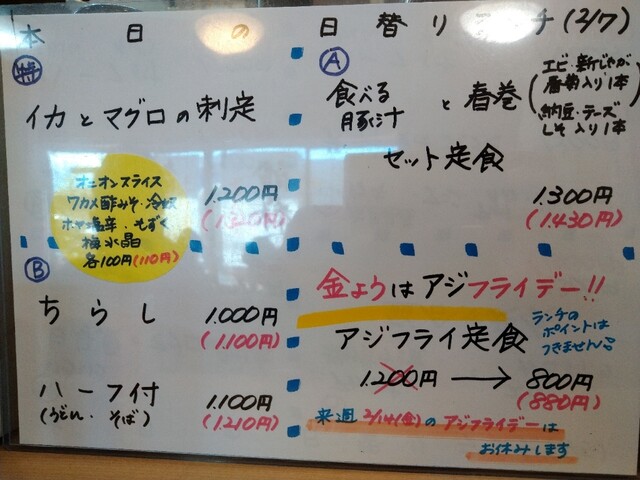 本日の日替りランチ(2/7)
特
イカとマグロの刺定
1.200円
(1.320円)
オニオンスライス
ワカメ酢みそ・冷奴
ホヤ塩辛・もずく
梅水晶
各100円(110円)
A
食べる
豚汁
と春巻
エビ・新じゃが
春菊入り1本
納豆・チーズ
しそ入り1本
セット定食
1.300円
(1.430円)
B
ちらし
1.000円
(1.100円)
ハーフ付
(うどん・そば)
1.100円
(1.210円)
金ようはアジフライデー!!
アジフライ定食
ランチの
ポイントは
つきません
1.200円→800円
(880円)
来週2/14(金)のアジフライデーは
お休みします